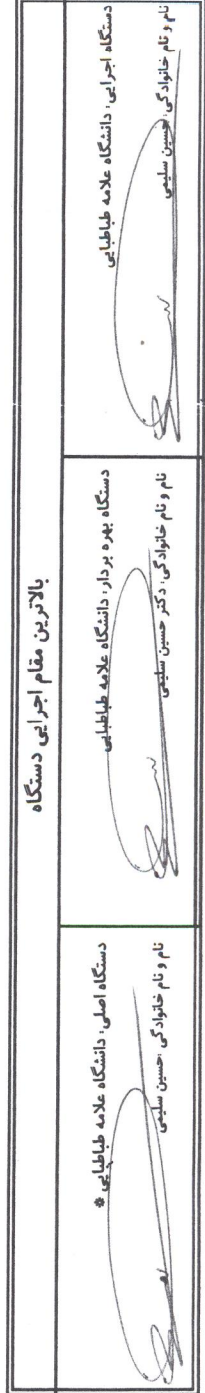 بالاترین مقام اجرایی دستگاه
دستگاه اجرایی: دانشگاه علامه طباطبایی
نام و نام خانوادگی: حسین سلیمی
دستگاه بهره بردار: دانشگاه علامه طباطبایی
نام و نام خانوادگی: دکتر حسین سلیمی
دستگاه اصلی: دانشگاه علامه طباطبایی *
نام و نام خانوادگی: حسین سلیمی